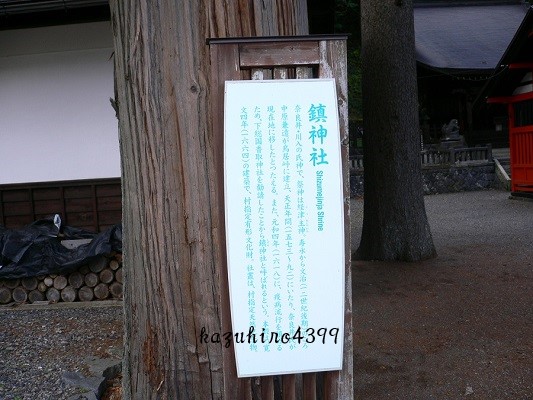 鎮神社
Shizumejinja Shrine
奈良井・川入の氏神で、祭神は経津主神。寿永から文治(一二世紀後期)
中原兼遠が鳥居峠に建立、天正年間(一五七三~九二)にいたり、奈良
現在地に移したとつたえる。また、元和四年(一六一八)に、疫病流行を
ため、下総国香取神社を勧請したことから鎮神社と呼ばれるという。本
文四年(一六六四)の建立で、村指定有形文化財、社叢は、村指定天
kazuhiro4399